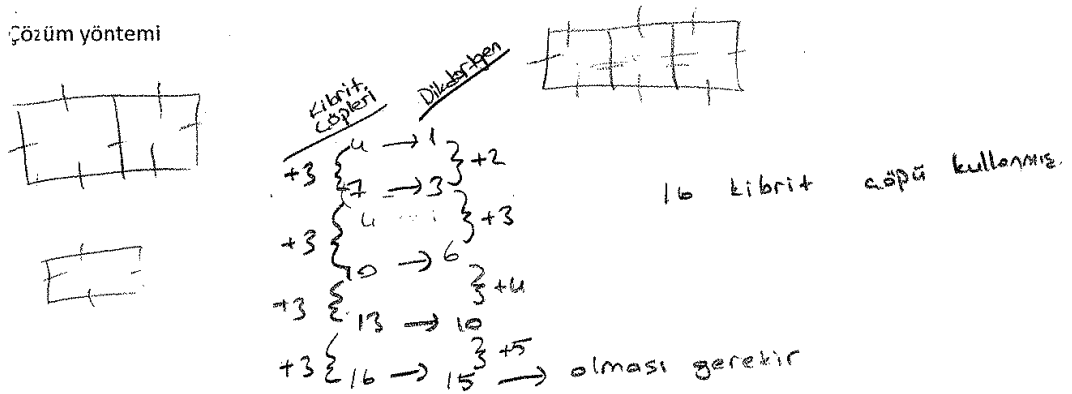 Çözüm yöntemi
Kibrit Çöpleri
Dikdörtgen
4 → 1
+3 +2
7 → 3
4
+3 +3
10 → 6
+3 +4
13 → 10
+3 +5
16 → 15 → olması gerekir
16 kibrit çöpü kullanmış.